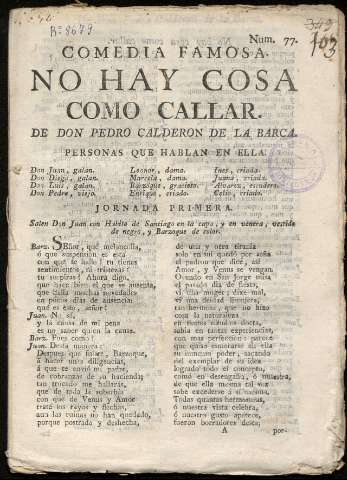 Num. 77.
COMEDIA FAMOSA.
NO HAY COSA
COMO CALLAR.
DE DON PEDRO CALDERON DE LA BARCA.
PERSONAS QUE HABLAN EN ELLA.
Don Juan, galan.
Don Diego, galan.
Don Luis, galan.
Don Pedro, viejo.
Leonor, dama.
Marcela, dama.
Barzoque, gracioso.
Enrique, criado.
Ines, criada.
Juana, criada.
Celio, criado.
JORNADA PRIMERA.
Salen Don Juan con Habito de Santiago en la capa, y en venera, vestido
de negro, y Barzoque de color.
Barz. SEñor, qué melancolía,
ó qué suspension es esta
con que te hallo? en tienes
sentimientos, ni tristezas?
tú suspiras? Ahora digo,
que hace bien el que se ausenta,
que halla muchas novedades
en pocos dias de ausencia:
qué es esto, señor?
Juan. No sé,
y la causa de mi pena
es no saber quien la causa.
Barz. Pues como?
Juan. Desta manera:
Despues que fuiste, Barzoque,
á hacer unas diligencias,
á que te envió mi padre,
de cobranzas de su hacienda;
tan trocado me hallarás,
que de toda la soberbia
con que de Venus y Amor
traté los rayos y flechas,
aun las ruinas no han quedado,
porque postrada y deshecha,
de una y otra tiranía
solo en mí quedó por señas
el padron que dice, así
Amor, y Venus se vengan.
Oyendo en San Jorge misa
el pasado dia de fiesta,
ví una muger; dixe mal,
ví una deidad lisonjera,
tan hermosa, que no hizo
cosa la naturaleza
en tantos estudios docta,
sabia en tantas experiencias,
con mas perfeccion: parece
que quiso esmerarse en ella
su inmenso poder, sacando
del exemplar de su idea
logrado todo el concepto,
como en desengaño, ó muestra,
de que ella misma tal vez
sabe excederse á sí misma.
Todas quantas hermosuras,
ó nuestra vista celebra,
ó nuestro gusto apetece,
fueron borradores desta;
A
por-